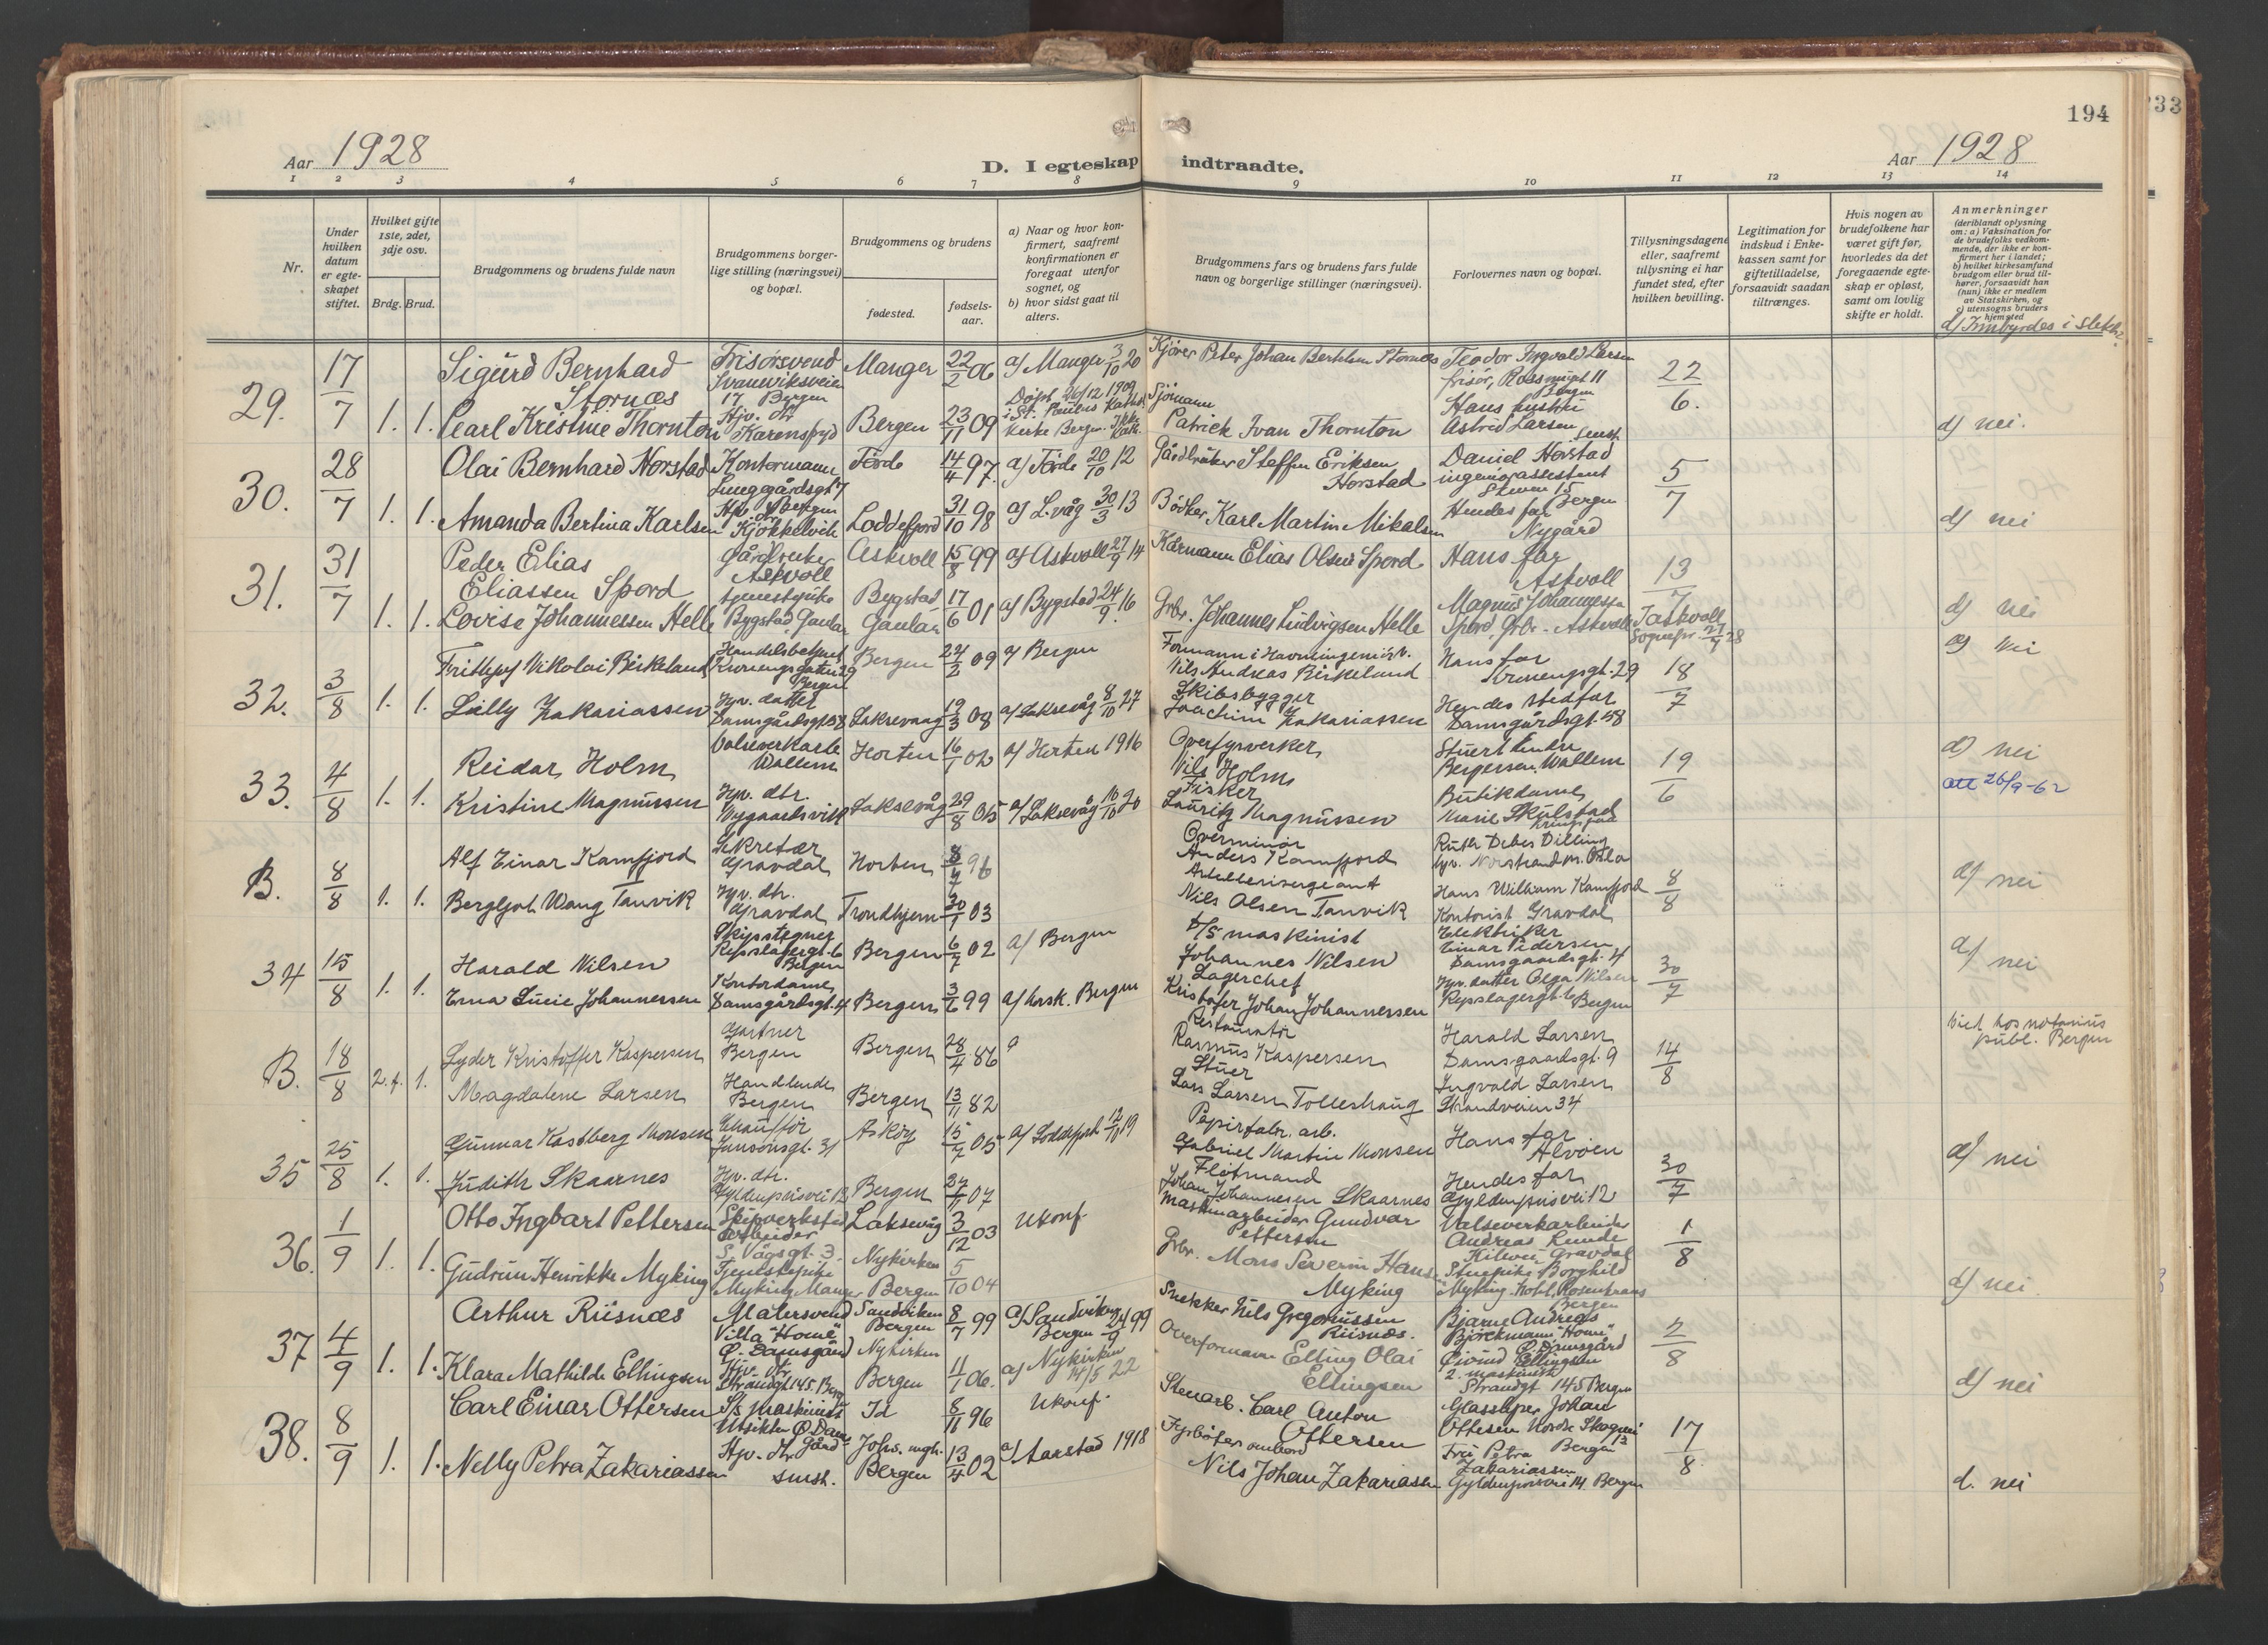 194
33
Aar 1928
D. I egteskap indtraadte.
Aar 1928
1 2 3 4 5 6 7 8 9 10 11 12 13 14
Nr.
Under hvilken datum er egteskapet stiftet.
Hvilket gifte 1ste, 2det, 3dje osv.
Brdg. Brud.
Brudgommens og brudens fulde navn
Brudgommens borgerlige stilling (næringsvei) og bopæl.
Brudgommens og brudens
fødested.
fødsels-aar.
a) Naar og hvor konfirmert, saafremt konfirmationen er foregaat utenfor sognet, og
b) hvor sidst gaat til alters.
Brudgommens fars og brudens fars fulde navn og borgerlige stillinger (næringsvei).
Forlovernes navn og bopæl.
Tillysningsdagene eller, saafremt tillysning ei har fundet sted, efter hvilken bevilling.
Legitimation for indskud i Enkekassen samt for giftetilladelse, forsaavidt saadan tiltrænges.
Hvis nogen av brudefolkene har været gift før, hvorledes da det foregaaende egteskap er opløst, samt om lovlig skifte er holdt.
Anmerkninger
(deriblandt oplysning om: a) Vaksination for de brudefolks vedkommende, der ikke er konfirmert her i landet; b) hvilket kirkesamfund brudgom eller brud tilhører, forsaavidt han (hun) ikke er medlem av Statskirken, og c) utensogns bruders hjemsted
d) Innbyrdes i slekt?
29. 17/7 1. 1.
Sigurd Bernhard Stornæs
Frisørsvend Svaneviksveien 17 Bergen
Manger 22/2 06
a) Manger 3/10 20
Kjører Peter Johan Berthin Stornæs
Teodor Ingvald Larsen frisør, Rossmugt 11 Bergen
22/6.
Pearl Kristine Thornton
Hjv. dtr.
Bergen 23/11 09
Døpt 26/12 1909 i St. Paulus Kathol. Kirke Bergen. Ikke Konf.
Sjømann Patrick Ivan Thornton
Hans hustru Astrid Larsen smst.
d) nei.
30. 28/7 1. 1.
Olai Bernhard Norstad
Kontormann Lungegårdsgt 7 Bergen
Førde 14/4 97.
a) Førde 20/10 12
Gårdbruker Steffen Eriksen Horstad
Daniel Horstad ingeniørassistent Steven 15 Bergen
5/7
Amanda Bertina Karlsen
Hjv. dtr. Kjøkkelvik
Loddefjord 31/10 98
a) L.våg 30/3 13
Bødker Karl Martin Mikalsen
Hendes far Nygård
d) nei
31. 31/7 1. 1.
Peder Elias Eliassen Spord
Gårdbruker Askvoll
Askvoll 15/8 99
a) Askvoll 27/9 14
Kårmann Elias Olsen Spord
Hans far Askvoll
13/7
Lovise Johannessen Helle
tjenestpike Bygstad, Gaular
Bygstad Gaular 17/6 01
a) Bygstad 24/9 16
Grbr. Johannes Ludvigsen Helle
Magnus Johannessen Spord, Grbr. - Askvoll
I Askvoll Sognepr. 27/7 28
d) nei
32. 3/8 1. 1.
Frithjof Nikolai Birkeland
Handelsbetjent Kroneng­gaten 29 Bergen
Bergen 24/2 09
a) Bergen
Formann i Havneingeniørv. Nils Andreas Birkeland
Hans far Vronengsgt. 29
18/7
d) nei
Lilly Zakariassen
Hjv. datter Damsgårdsgt 58
Laksevaag 19/3 08
a) Laksevåg 8/10 27
Skibsbygger Joachim Zakariassen
Hendes stedfar Damsgårdsgt. 58
33. 4/8 1. 1.
Reidar Holm
Valseverkarb Wallem
Horten 16/1 02
a) Horten 1916
Overfyrverker Nils Holm
Stuert Endre Bergersen, Wallem
19/6
d) nei
att 26/9-62
Kristine Magnussen
Hjv. dtr. Nygaardsvik
Laksevåg 29/8 05
a) Laksevåg 10/10 20
Fisker Lauritz Magnussen
Butikdame Marie Skulstad
B. 8/8 1. 1.
Alf Einar Kamfjord
Sekretær Gravdal
Horten 8/7 96
Overminør Anders Kamfjord
Ruth Debes Dilling hjv. Norstrand pr. Oslo
8/8
d) nei
Bergljot Wang Tanvik
Hjv. dtr. Gravdal
Trondhjem 30/1 03
Artillerisergeant Nils Olsen Tanvik
Hans William Kamfjord Kontorist Gravdal
34 15/8 1. 1.
Harald Nilsen
Skipstegner Repslagergt. 6 Bergen
Bergen 6/7 02
a) Bergen
D/S maskinist Johannes Nilsen
Elektriker Einar Pedersen Damsgaardsgt. 4
30/7
d) nei
Erna Lucie Johannessen
Kontordame Damsgårdsgt. 4
Bergen 3/6 99
a) korsk. Bergen
Lagerchef Kristofer Johan Johannessen
Hjv. datter Olga Nilsen Repslagergt 6 Bergen
B. 18/8 2. f. 1.
Lyder Kristoffer Kaspersen
Gartner Bergen
Bergen 28/4 86
a
Restauratør Rasmus Kaspersen
Harald Larsen Damsgaardsgt. 9
14/8
Viet hos notarius publ. Bergen
Magdalene Larsen
Handlende Bergen
Bergen 13/11 82
Stuer Lars Larsen Tolleshaug
Ingvald Larsen Strandveien 34
35 25/8 1. 1.
Gunnar Kastberg Monsen
Chauffør Jansonsgt. 31
Askøy 15/7 05
a) Loddefjord 12/10 19
Papirfabr. arb. Gabriel Martin Monsen
Hans far Alvøen
30/7
d) nei
Judith Skaarnes
Hjv. dtr. Gyldenprisvei 12
Bergen 07
Fløtmand Johan Johannesen Skaarnes
Hendes far Gyldenprisvei 12
36. 1/9 1. 1.
Otto Ingbart Pettersen
Skipverkstedarbeider S. Vågsgt. 3.
Laksevåg 3/12 03
Ukonf.
Maskinarbeider Gundvar Pettersen
Valseverkarbeider Andreas Runde Gravdal
1/8
Gudrun Henrikke Myking
Tjenestepike Myking Manger
Nykirken Bergen 5/10 04
Grbr. Mons Severin Hansen Myking
Stuepike Borghild Myking Hotel Rosenkrans Bergen
d) nei.
37 4/9 1. 1.
Arthur Riisnæs
Malersvend Villa "Home" Ø. Damsgård
Sandviken Bergen 8/7 99
a) Sandviken Bergen
Snekker Nils Gregoriussen Riisnæs.
Bjarne Andreas Bjørckmann "Home" Ø. Damsgård
2/8
Klara Mathilde Ellingsen
Hjv. dtr. Strandgt 145. Berg
Nykirken Bergen 11/1 06.
a) Nykirken 14/5 22
Overformann Elling Olai Ellingsen
Øivind Ellingsen 2. maskinist Strandgt 145 Bergen
d) nei
38. 8/9 1. 1.
Carl Einar Ottersen
S/s maskinist Utsikten Ø. Damsgård
Id 8/11 96
Ukonf.
Stenarb. Carl Anton Ottersen
Glassliper Johan Ottesen Nordre Skogvei 13 Bergen
17/8
Nelly Petra Zakariassen
Hjv. dtr. smst.
Johs. mgh. Bergen 13/4 02
a) Aarstad 1918
Fyrbøter ombord Nils Johan Zakariassen
Fru Petra Zakariassen Gyldenprisvei 14. Bergen
d. nei